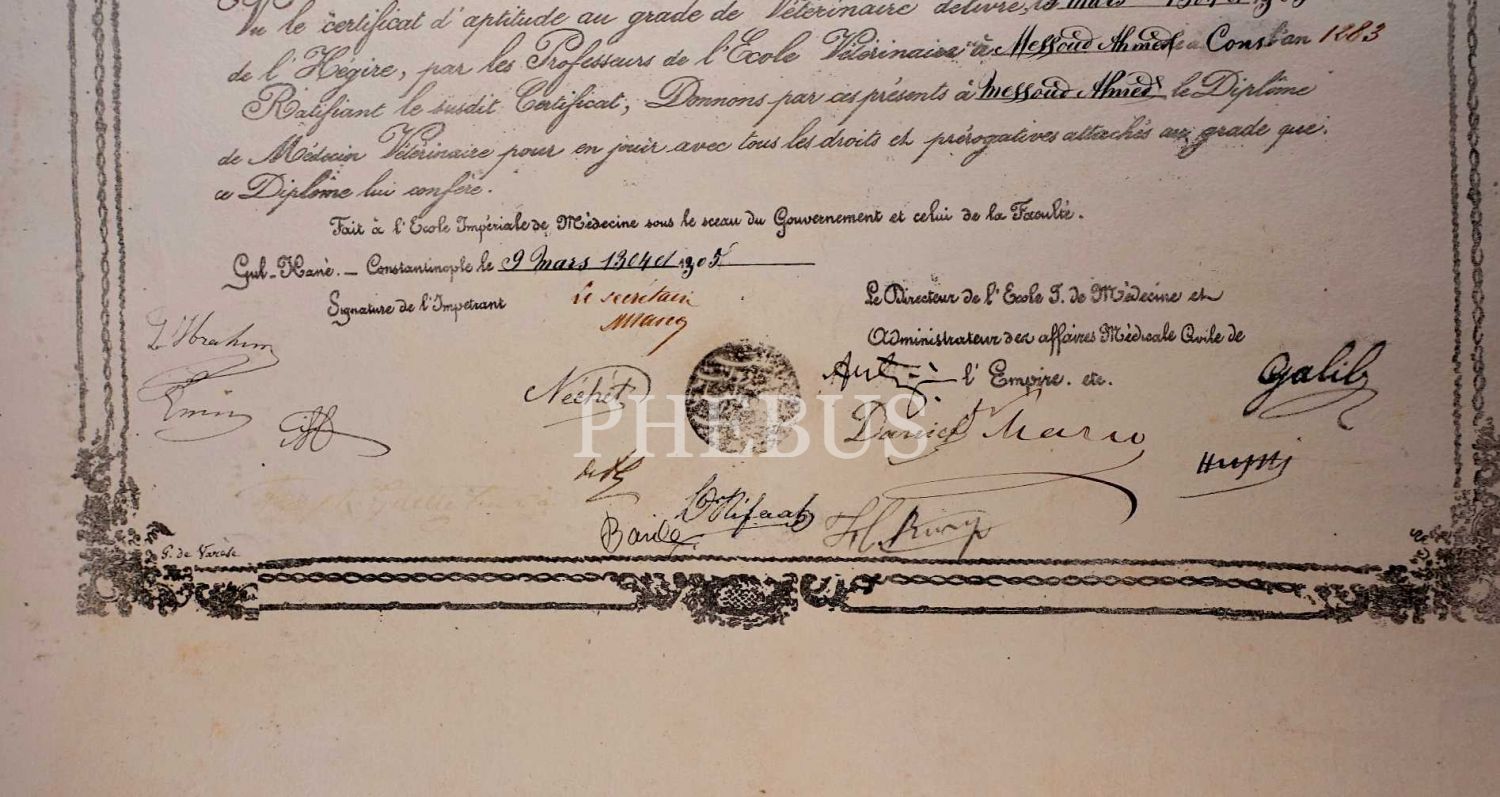 Vu le certificat d'aptitude au grade de Vétérinaire délivré, le mars
de l'Hégire, par les Professeurs de l'Ecole Vétérinaire à Messoud Ahmed né à Const. l'an 1283
Ratifiant le susdit Certificat, Donnons par ces présents à Messoud Ahmed le Diplôme
de Médecin Vétérinaire pour en jouir avec tous les droits et prérogatives attachés au grade que
ce Diplôme lui confère.
Fait à l'Ecole Impériale de Médecine sous le sceau du Gouvernement et celui de la Faculté.
Gul-Hané. — Constantinople le 9 mars 1304 / 1305
Signature de l'Impétrant
Le secrétaire
Le Directeur de l'Ecole I. de Médecine et
Administrateur des affaires Médicale Civile de
l'Empire. etc.
Ibrahim
Emin
Néchet
Galib
PHEBUS
Dr Rifaat
G. de Varèse